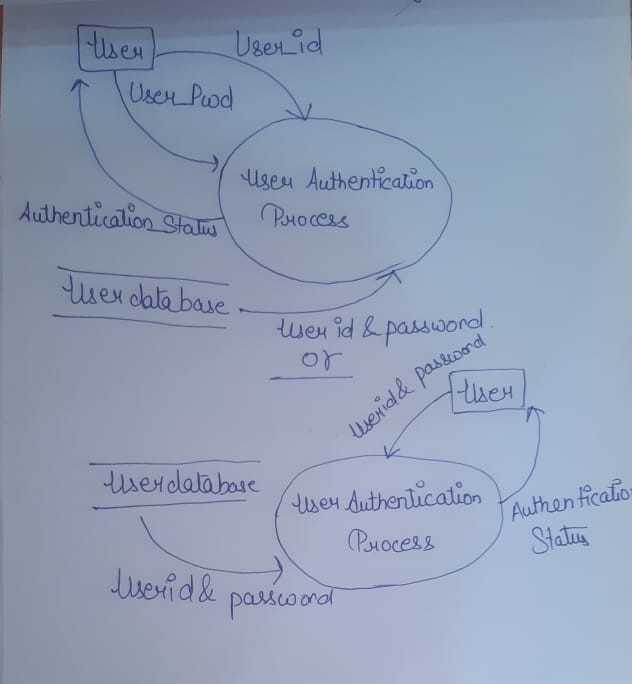 User
User_id
User_Pwd
User Authentication
Process
Authentication_Status
User database
User id & password.
or
User id & password
User
User database
User Authentication
Process
Authentication
Status
User id & password